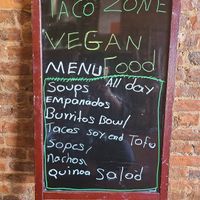 TACO ZONE
VEGAN
MENU FOOD
SOUPS All day
Emponados
Burritos Bowl
Tacos soy and Tofu
Sopes/
nachos/
Quinoa Salad